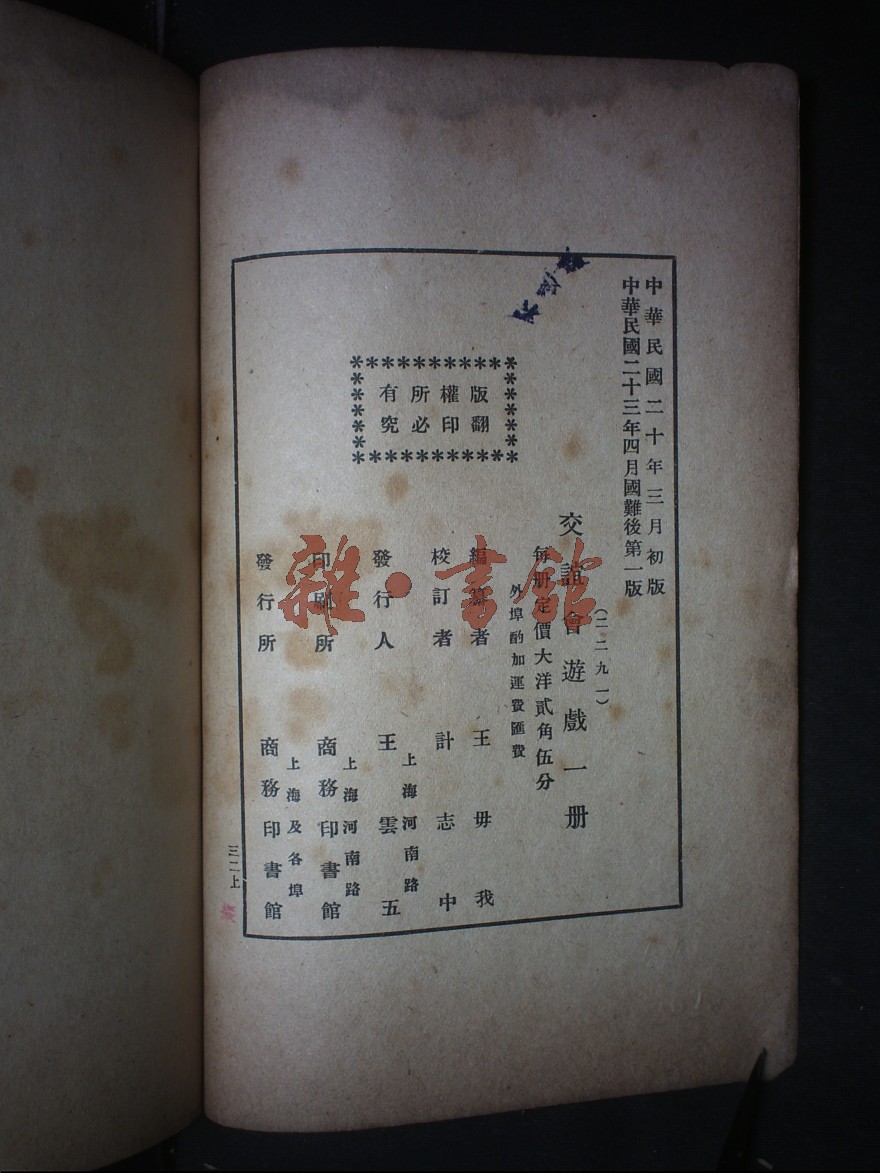 中華民國二十年三月初版
中華民國二十三年四月國難後第一版
(二二九一)
交誼會遊戲一册
每册定價大洋貳角伍分
外埠酌加運費匯費
編纂者 王毋我
校訂者 計志中
上海河南路
發行人 王雲五
上海河南路
印刷所 商務印書館
上海及各埠
發行所 商務印書館
版權所有
翻印必究
三二上
雜·書館